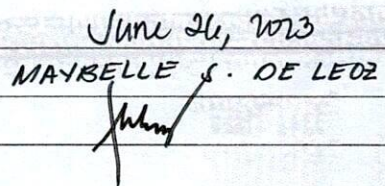 June 26, 2023
MAYBELLE S. DE LEOZ